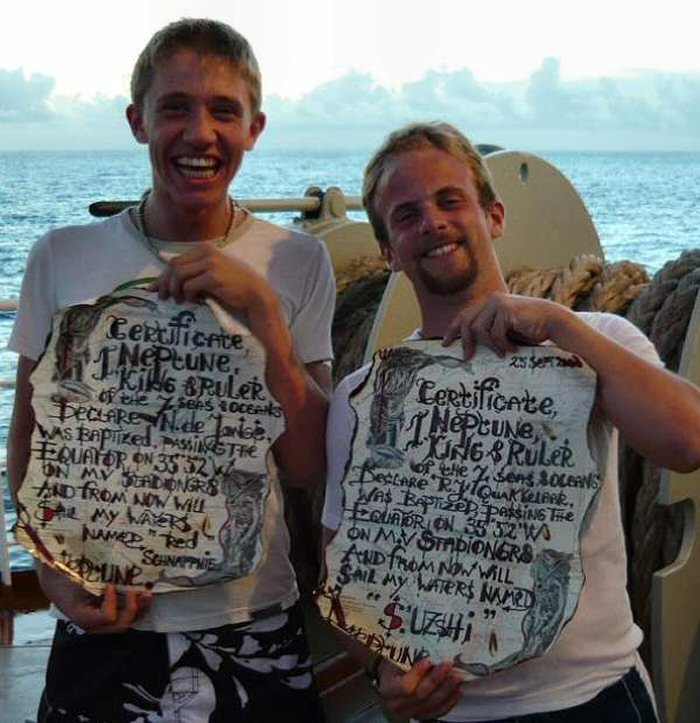 Certificate,
I Neptune,
King & Ruler
of the 7 seas & oceans
Declare N. de Jonge,
was baptized, passing the
Equator on 35°52"W
on M.V Stadiongr8
And from now will
Sail my waters
named "Red
Schnappnie"
Neptune.
25 Sept
Certificate,
I Neptune,
King & Ruler
of the 7 seas & oceans
Declare R.V. Quakkelaar,
was baptized, passing the
Equator on 35°52"W
on M.V Stadiongr8
And from now will
Sail my waters named
"S.'uzshi"
Neptune